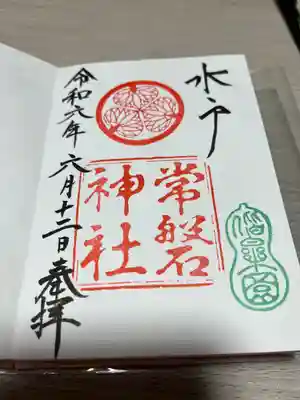 水戸
常磐
神社
偕楽園
令和六年 六月十二日 奉拝